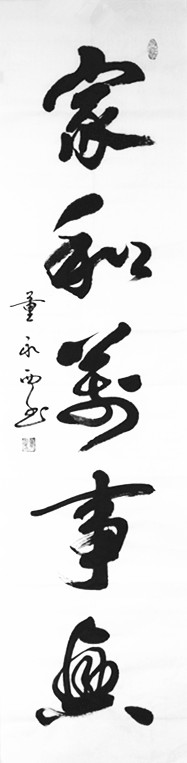 家和萬事興
董永西书